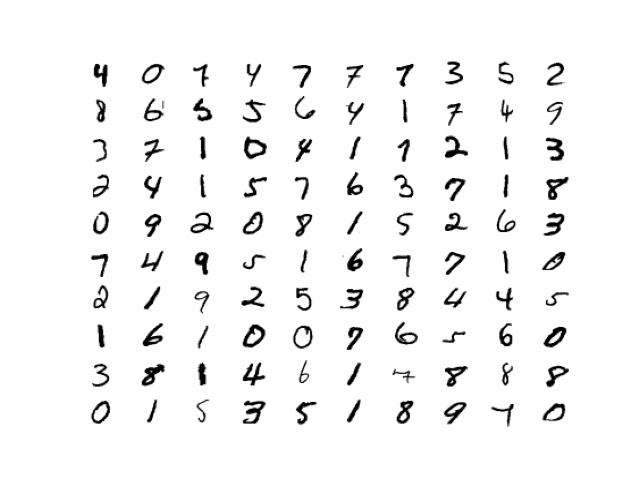 4 0 7 4 7 7 7 3 5 2
8 6 5 5 6 4 1 7 4 9
3 7 1 0 4 1 1 2 1 3
2 4 1 5 7 6 3 7 1 8
0 9 2 0 8 1 5 2 6 3
7 4 9 5 1 6 7 7 1 0
2 1 9 2 5 3 8 4 4 5
1 6 1 0 0 7 6 5 6 0
3 8 1 4 6 1 7 8 8 8
0 1 5 3 5 1 8 9 7 0